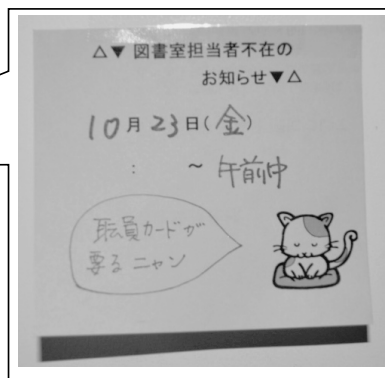 △▼ 図書室担当者不在の
お知らせ▼△
10月23日(金)
: ～ 午前中
職員カードが
要るニャン